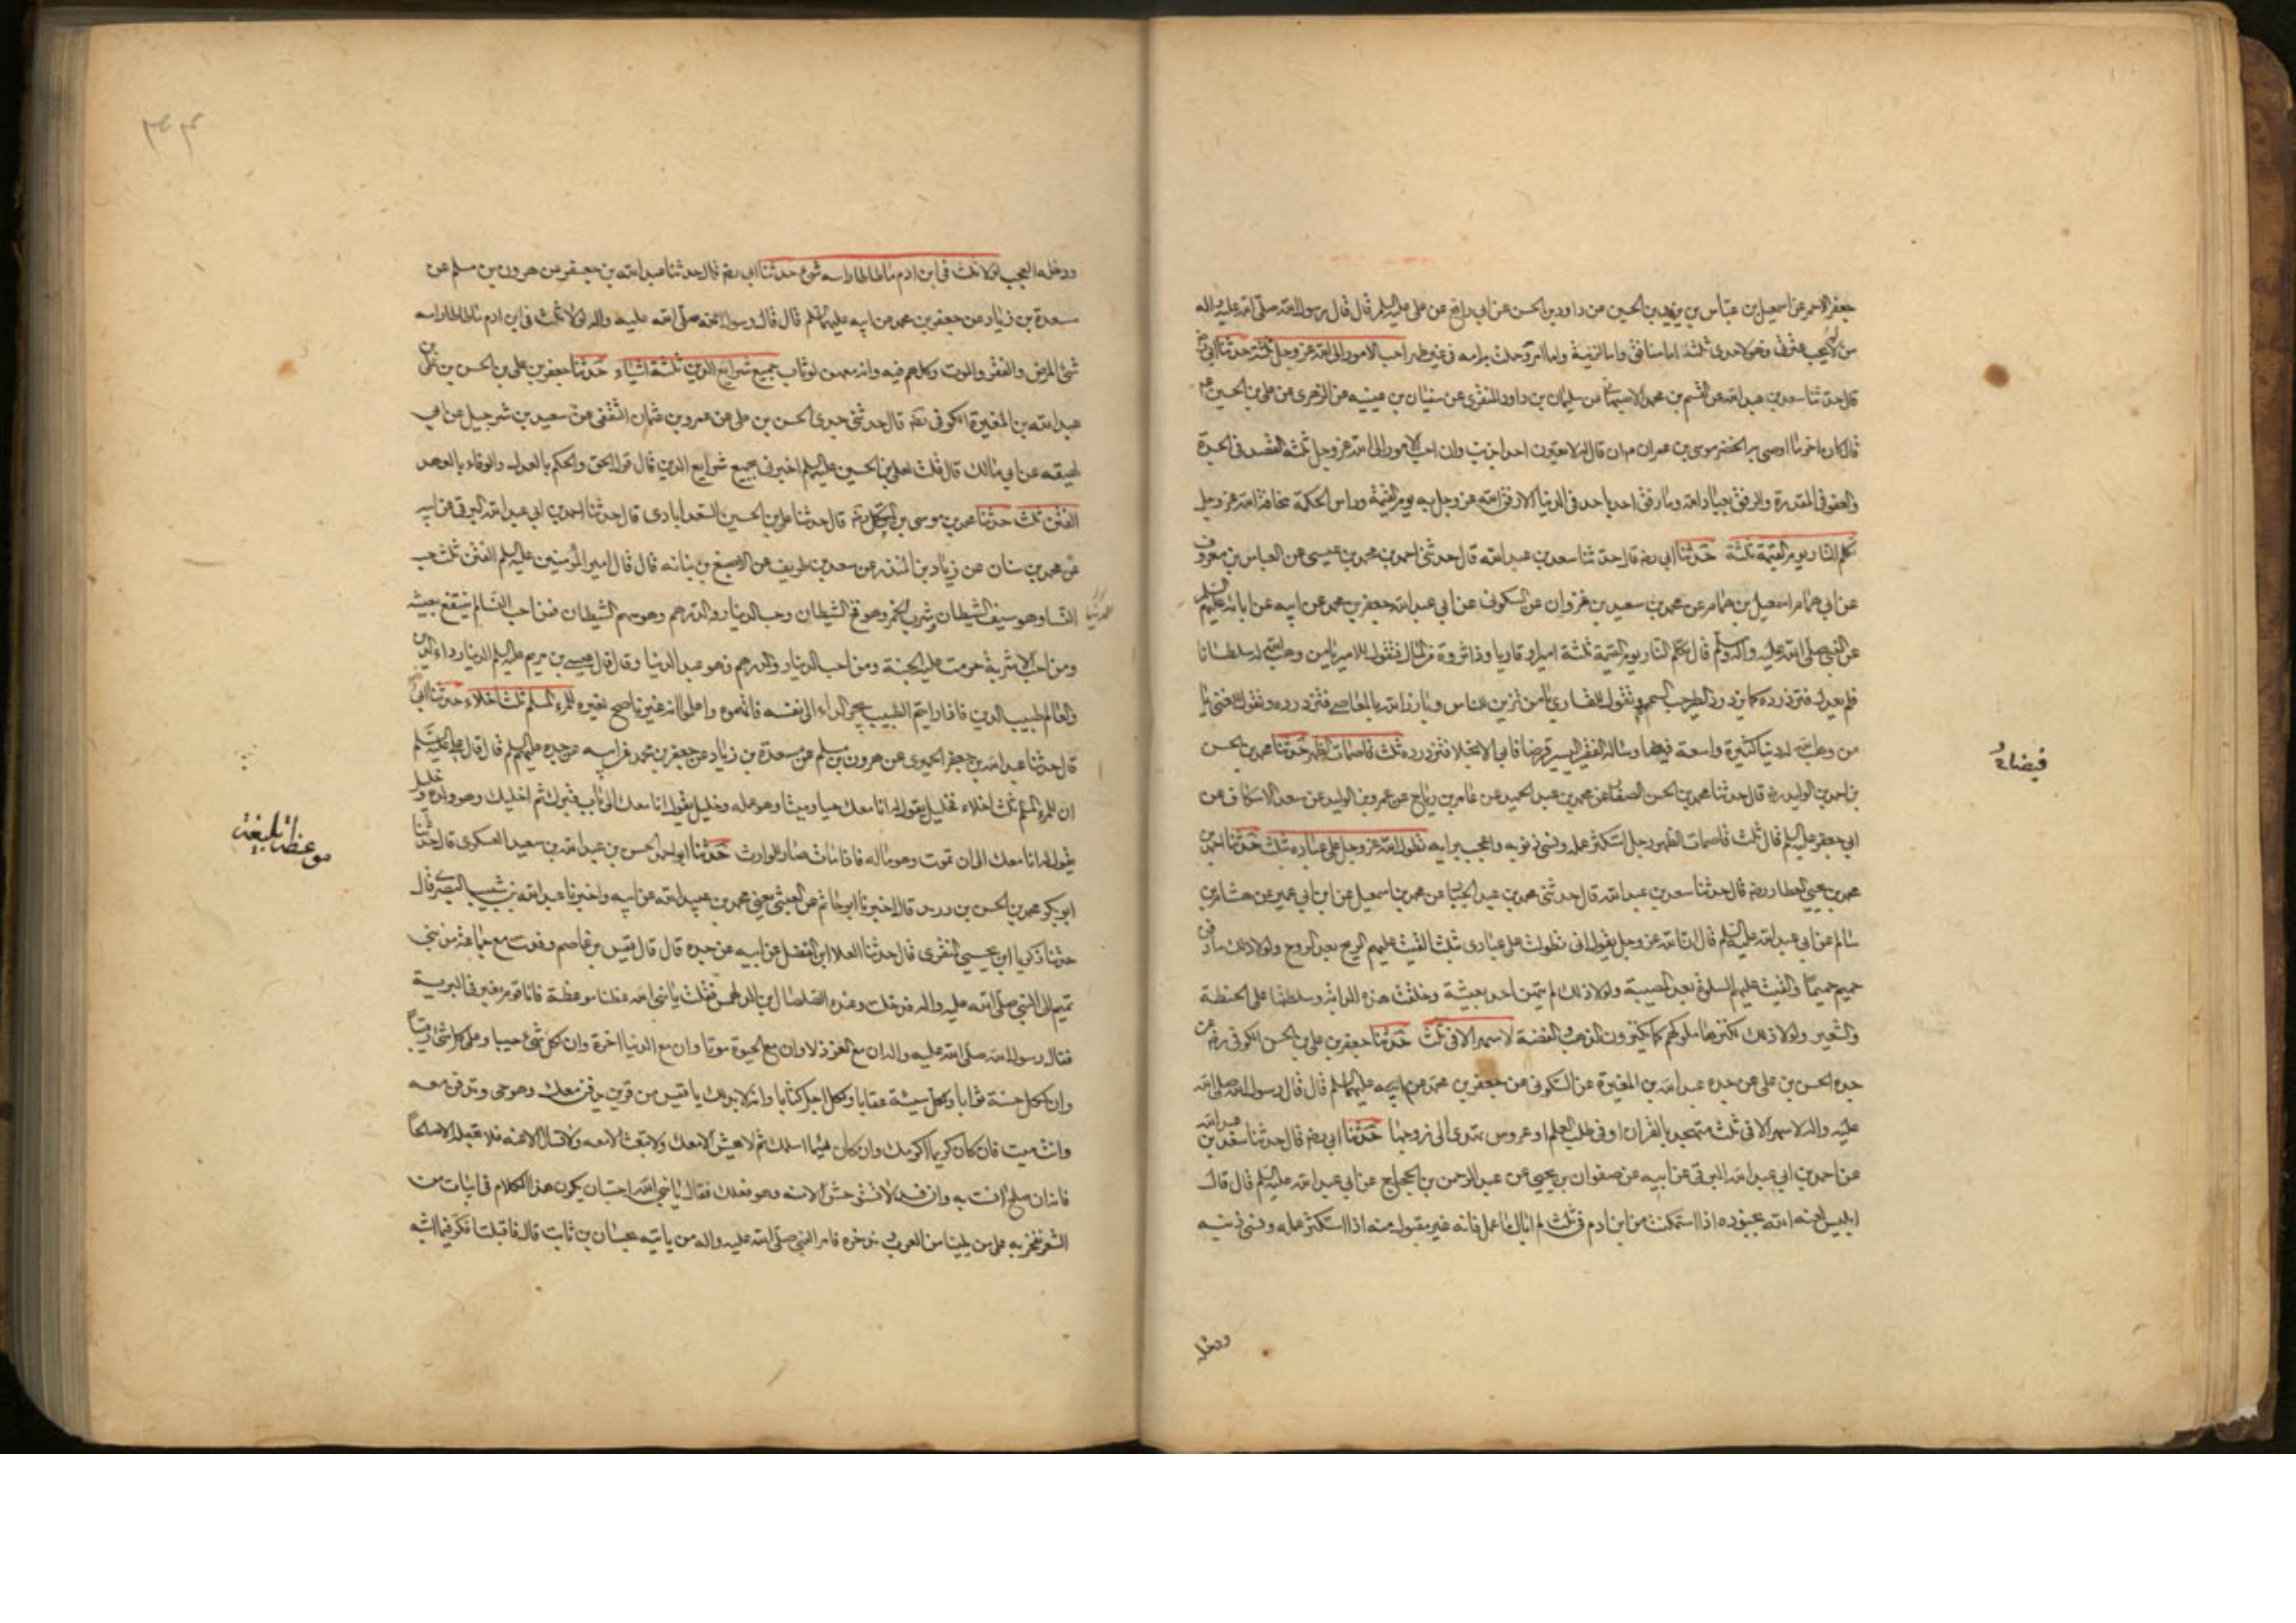 جعفر الاحمر عن اسمعيل بن عباس بن يزيد بن الحسين عن داود بن الحسن عن ابي رافع عن علي عليه السلم قال قال رسول الله صلى الله عليه واله
من لم يحب عترتي فهو لاحدى ثلثة اما منافق واما لزنية واما امرؤ حملت به امه في غير طهر احب الامور الى الله عز وجل ثلثة حدثنا ابي رضه
قال حدثنا سعد بن عبد الله عن القسم بن محمد الاصبهاني عن سليمان بن داود المنقري عن سفيان بن عيينه عن الزهري عن علي بن الحسين ع
قال كان اخر ما اوصى به الخضر موسى بن عمران ع ان قال له لا تعيرن احدا بذنب وان احب الامور الى الله عز وجل ثلثه القصد في الجدة
والعفو في المقدرة والرفق بعباد الله وما رفق احد باحد في الدنيا الا رفق الله عز وجل به يوم القيمة وراس الحكمة مخافة الله عز وجل
تكلم النار يوم القيمة ثلثة حدثنا ابي رضه قال حدثنا سعد بن عبد الله قال حدثني احمد بن محمد بن عيسى عن العباس بن معروف
عن ابي همام اسمعيل بن همام عن محمد بن سعيد بن غزوان عن السكوني عن ابي عبد الله جعفر بن محمد عن ابيه عن ابائه عليهم السلم
عن النبي صلى الله عليه واله وسلم قال تكلم النار يوم القيمة ثلثة اميرا وقاريا وذا ثروة من المال فتقول للامير يا من وهب الله له سلطانا
فلم يعدل فتزدرده كما يزدرد الطير حب السمسم وتقول للقاري يا من تزين للناس وبارز الله بالمعاصي فتزدرده وتقول للغني يا
من وهب الله له دنيا كثيرة واسعة فيضا وساله الفقير اليسير قرضا فابى الا بخلا فتزدرده ثلث قاصمات الظهر حدثنا محمد بن الحسن
بن احمد بن الوليد رضه قال حدثنا محمد بن الحسن الصفار عن محمد بن عبد الحميد عن عامر بن رياح عن عمرو بن الوليد عن سعد الاسكاف عن
ابي جعفر عليه السلم قال ثلث قاصمات الظهر رجل استكثر عمله ونسي ذنوبه واعجب برايه تطول الله عز وجل على عباده بثلث حدثنا احمد بن
محمد بن يحيى العطار رضه قال حدثنا سعد بن عبد الله قال حدثني محمد بن عبد الجبار عن محمد بن اسمعيل عن ابن ابي عمير عن هشام بن
سالم عن ابي عبد الله عليه السلم قال ان الله عز وجل يقول اني تطولت على عبادي بثلث القيت عليهم الريح بعد الروح ولولا ذلك ما دفن
حميم حميما والقيت عليهم السلوة بعد المصيبة ولولا ذلك لم يتهن احد بعيشة وخلقت هذه الدابة وسلطتها على الحنطة
والشعير ولولا ذلك لكنزهما ملوكهم كما يكنزون الذهب والفضة لا سهر الا في ثلث حدثنا جعفر بن علي بن الحسن الكوفي رضه عن
جده الحسن بن علي عن جده عبد الله بن المغيرة عن السكوني عن جعفر بن محمد عن ابيه عليهما السلم قال قال رسول الله صلى الله
عليه واله لا سهر الا في ثلث متهجد بالقران او في طلب العلم او عروس تهدى الى زوجها حدثنا ابي رضه قال حدثنا سعد بن عبد الله
عن احمد بن ابي عبد الله البرقي عن ابيه عن صفوان بن يحيى عن عبد الرحمن بن الحجاج عن ابي عبد الله عليه السلم قال قال
ابليس لعنه الله لجنوده اذا استمكنت من ابن ادم في ثلث لم ابال ما عمل فانه غير مقبول منه اذا استكثر عمله ونسي ذنبه
ودخله
ودخله العجب لولا ثلث في ابن ادم ما طاطا راسه شئ حدثنا ابي رضه قال حدثنا عبد الله بن جعفر عن هرون بن مسلم عن
مسعدة بن زياد عن جعفر بن محمد عن ابيه عليهما السلم قال قال رسول الله صلى الله عليه واله لولا ثلث في ابن ادم ما طاطا راسه
شئ المرض والفقر والموت وكلهم فيه وانه معهن لوثاب جميع شرايع الدين ثلثة اشياء حدثنا جعفر بن علي بن الحسن بن علي بن
عبد الله بن المغيرة الكوفي رضه قال حدثني جدي الحسن بن علي عن عمرو بن عثمان الثقفي عن سعيد بن شرجيل عن ابن
لهيعه عن ابي مالك قال قلت لعلي بن الحسين عليه السلم اخبرني بجميع شرايع الدين قال قول الحق والحكم بالعدل والوفاء بالعهد
الفتن ثلث حدثنا محمد بن موسى بن المتوكل رضه قال حدثنا علي بن الحسين السعدابادي قال حدثنا احمد بن ابي عبد الله البرقي عن ابيه
عن محمد بن سنان عن زياد بن المنذر عن سعد بن طريف عن الاصبغ بن نباته قال قال امير المؤمنين عليه السلم الفتن ثلث حب
النساء وهو سيف الشيطان وشرب الخمر وهو فخ الشيطان وحب الدينار والدرهم وهو سهم الشيطان فمن احب النسا لم ينتفع بعيشه
ومن احب الاشربة حرمت عليه الجنة ومن احب الدينار والدرهم فهو عبد الدنيا وقال قال عيسى بن مريم عليه السلم الدينار داء الدين
والعالم طبيب الدين فاذا رايتم الطبيب يجر الداء الى نفسه فاتهموه واعلموا انه غير ناصح لغيره للمرء المسلم ثلث اخلاء حدثنا ابي رضه
قال حدثنا عبد الله بن جعفر الحميري عن هرون بن مسلم عن مسعدة بن زياد عن جعفر بن محمد عن ابيه عن جده عليهم السلم قال قال علي عليه السلم
ان للمرء المسلم ثلث اخلاء فخليل يقول له انا معك حيا وميتا وهو عمله وخليل يقول له انا معك الى باب قبرك ثم اخليك وهو ولده وخليل
يقول له انا معك الى ان تموت وهو ماله فاذا مات صار للوارث حدثنا ابو احمد الحسن بن عبد الله بن سعيد العسكري قال حدثنا
ابو بكر محمد بن الحسن بن دريد قال اخبرنا ابو حاتم عن العتبي يعني محمد بن عبيد الله عن ابيه واخبرنا عبد الله بن شبيب البصري قال
حدثنا زكريا ابن يحيى المنقري قال حدثنا العلا ابن الفضل عن ابيه عن جده قال قال قيس بن عاصم وفدت مع جماعة من بني
تميم الى النبي صلى الله عليه واله فدخلت وعنده الصلصال بن الدلهمس فقلت يا نبي الله عظنا موعظة فانا قوم نعبر في البرية
فقال رسول الله صلى الله عليه واله ان مع العز ذلا وان مع الحيوة موتا وان مع الدنيا اخرة وان لكل شئ حسيبا وعلى كل شئ رقيبا
وان لكل حسنة ثوابا ولكل سيئة عقابا ولكل اجل كتابا وانه لا بد لك يا قيس من قرين يدفن معك وهو حي وتدفن معه
وانت ميت فان كان كريما اكرمك وان كان لئيما اسلمك ثم لا يحشر الا معك ولا تبعث الا معه ولا تسال الا عنه فلا تجعله الا صالحا
فانه ان صلح انست به وان فسد لا تستوحش الا منه وهو فعلك فقال يا نبي الله احب ان يكون هذا الكلام في ابيات من
الشعر نفخر به على من يلينا من العرب وندخره فامر النبي صلى الله عليه واله من ياتيه بحسان بن ثابت قال فاقبلت افكر فيما اشبه
موعظة بليغة